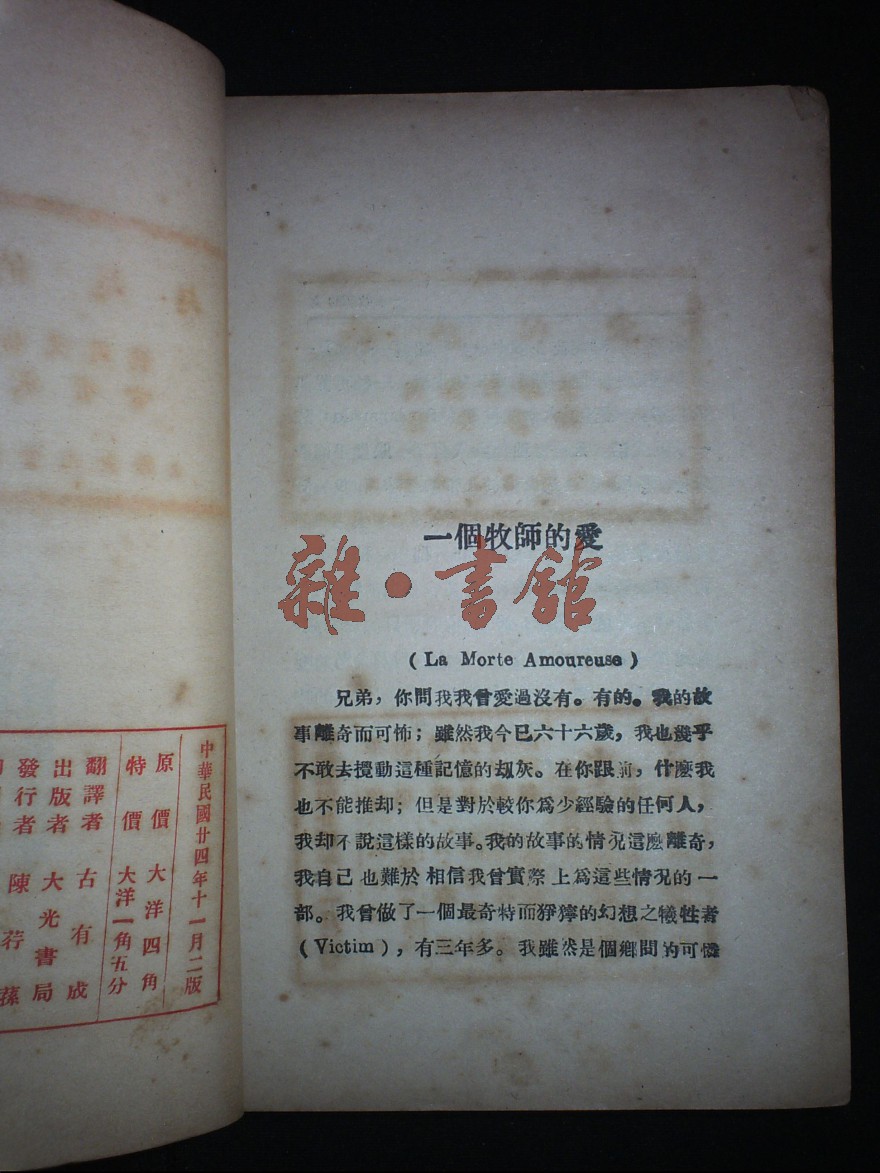 一個牧師的愛
雜·書舘
(La Morte Amoureuse)
兄弟，你問我我曾愛過沒有。有的。我的故
事離奇而可怖；雖然我今已六十六歲，我也幾乎
不敢去攪動這種記憶的刼灰。在你跟前，什麼我
也不能推却；但是對於較你爲少經驗的任何人，
我却不說這樣的故事。我的故事的情况這麼離奇，
我自己也難於相信我曾實際上爲這些情况的一
部。我曾做了一個最奇特而猙獰的幻想之犧牲者
(Victim)，有三年多。我雖然是個鄉間的可憐
中華民國廿四年十一月二版
原價 大洋四角
特價 大洋一角五分
翻譯者 古有成
出版者 大光書局
發行者 陳荇蓀